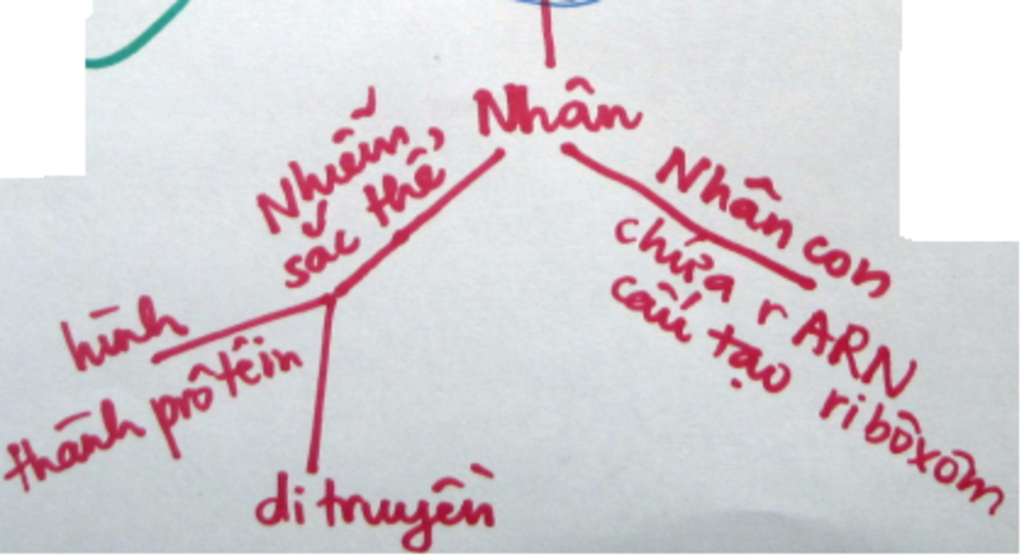 Nhân
Nhiễm
sắc thể
hình
thành prôtêin
di truyền
Nhân con
chứa rARN
cấu tạo ribôxôm